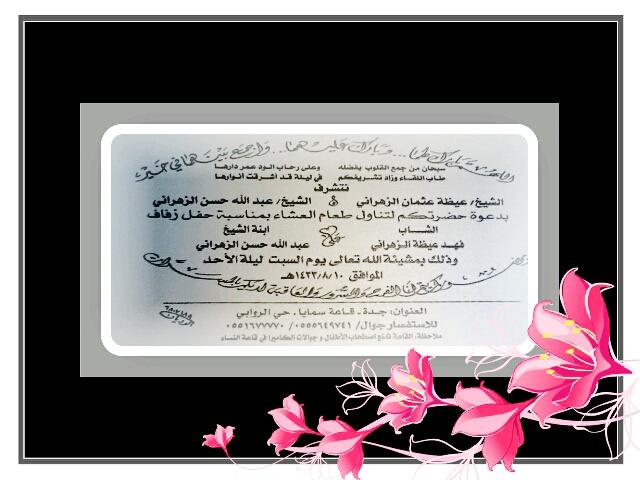 اللهم بارك لهما ... وبارك عليهما ... واجمع بينهما في خير
سبحان من جمع القلوب بفضله وعلى رحاب الود عمر دارها
طاب اللقاء وزاد تشريفكم في ليلة قد أشرقت أنوارها
نتشرف
الشيخ/ عيظة عثمان الزهراني & الشيخ/ عبد الله حسن الزهراني
بدعوة حضرتكم لتناول طعام العشاء بمناسبة حفل زفاف
الشاب ابنة الشيخ
فهد عيظة الزهراني عبد الله حسن الزهراني
وذلك بمشيئة الله تعالى يوم السبت ليلة الأحد
الموافق ١٤٣٣/٨/١٠هـ
الفرح والسرور والعاقبة
العنوان: جدة - قاعة سمايا - حي الروابي
للاستفسار جوال/ ٠٥٥٥٦٤٩٧٤١ / ٠٥٥١٦٧٧٧٧٠
ملاحظة: القاعة تمنع اصطحاب الأطفال و جوالات الكاميرا في قاعة النساء